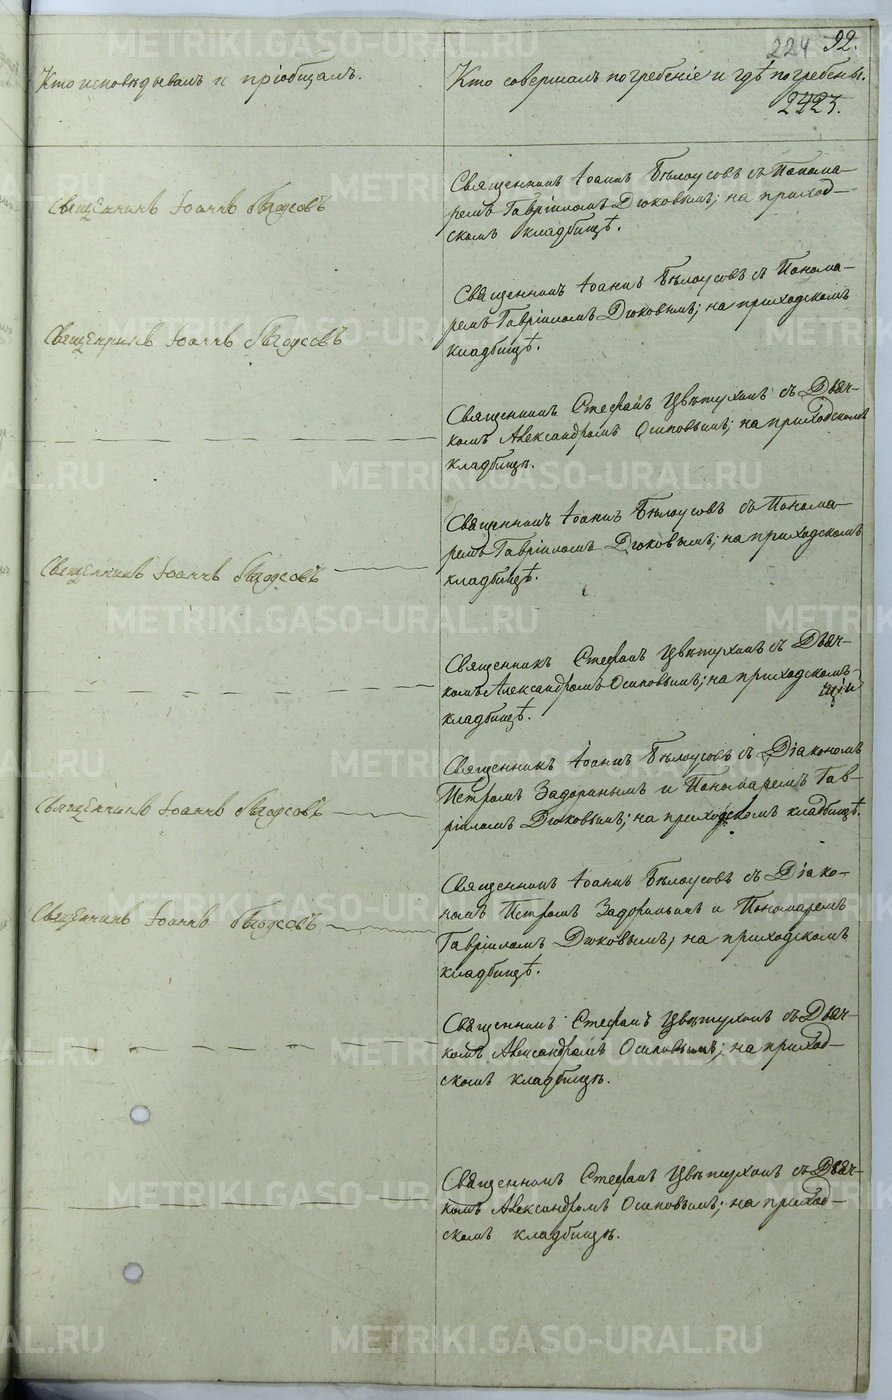 224 92.
Кто исповѣдывалъ и пріобщалъ.
Кто совершалъ погребеніе и гдѣ погребены.
2423.
Священникъ Іоаннъ Бѣлоусовъ
Священникъ Іоаннъ Бѣлоусовъ съ Понома-
ремъ Гавріиломъ Дюковымъ; на приход-
скомъ кладбищѣ.
Священникъ Іоаннъ Бѣлоусовъ
Священникъ Іоаннъ Бѣлоусовъ съ Понома-
ремъ Гавріиломъ Дюковымъ; на приходскомъ
кладбищѣ.
Священникъ Стефанъ Цвѣтухинъ съ Дьяч-
комъ Александромъ Осиповымъ; на приходскомъ
кладбищѣ.
Священникъ Іоаннъ Бѣлоусовъ
Священникъ Іоаннъ Бѣлоусовъ съ Понома-
ремъ Гавріиломъ Дюковымъ; на приходскомъ
кладбищѣ.
Священникъ Стефанъ Цвѣтухинъ съ Дьяч-
комъ Александромъ Осиповымъ; на приходскомъ
кладбищѣ.
Священникъ Іоаннъ Бѣлоусовъ
Священникъ Іоаннъ Бѣлоусовъ съ Діакономъ
Петромъ Задоринымъ и Пономаремъ Гав-
ріиломъ Дюковымъ; на приходскомъ кладбищѣ.
Священникъ Іоаннъ Бѣлоусовъ
Священникъ Іоаннъ Бѣлоусовъ съ Діако-
номъ Петромъ Задоринымъ и Пономаремъ
Гавріиломъ Дюковымъ; на приходскомъ
кладбищѣ.
Священникъ Стефанъ Цвѣтухинъ съ Дьяч-
комъ Александромъ Осиповымъ; на приход-
скомъ кладбищѣ.
Священникъ Стефанъ Цвѣтухинъ съ Дьяч-
комъ Александромъ Осиповымъ; на приход-
скомъ кладбищѣ.
METRIKI.GASO-URAL.RU